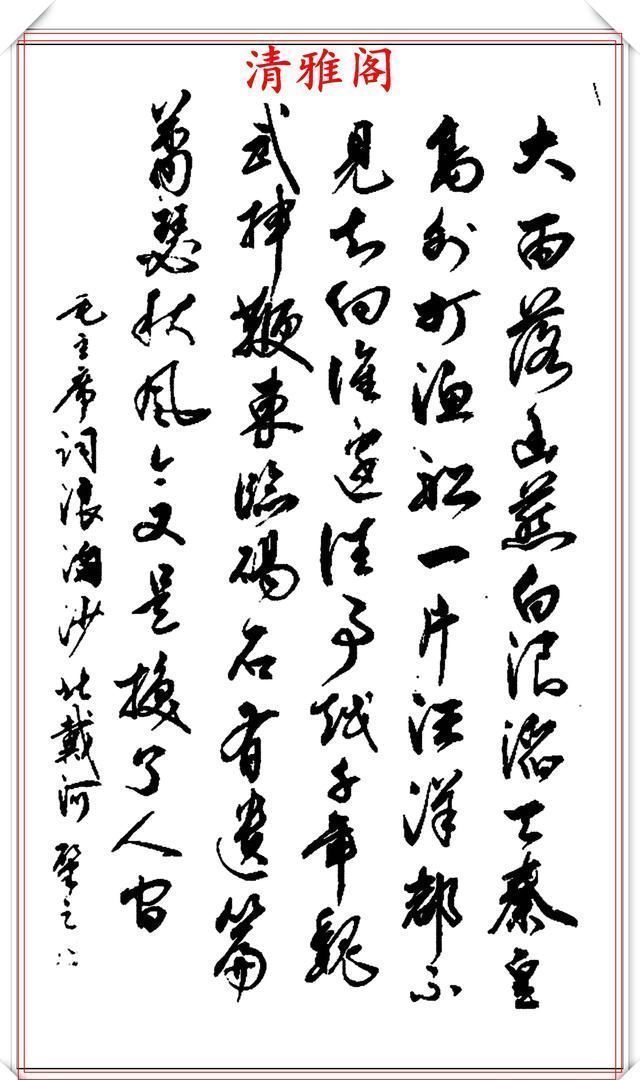 清雅阁
大雨落幽燕白浪滔天秦皇
島外打渔船一片汪洋都不
見知向誰邊往事越千年魏
武揮鞭東臨碣石有遺篇
蕭瑟秋風今又是換了人间
毛主席词浪淘沙北戴河